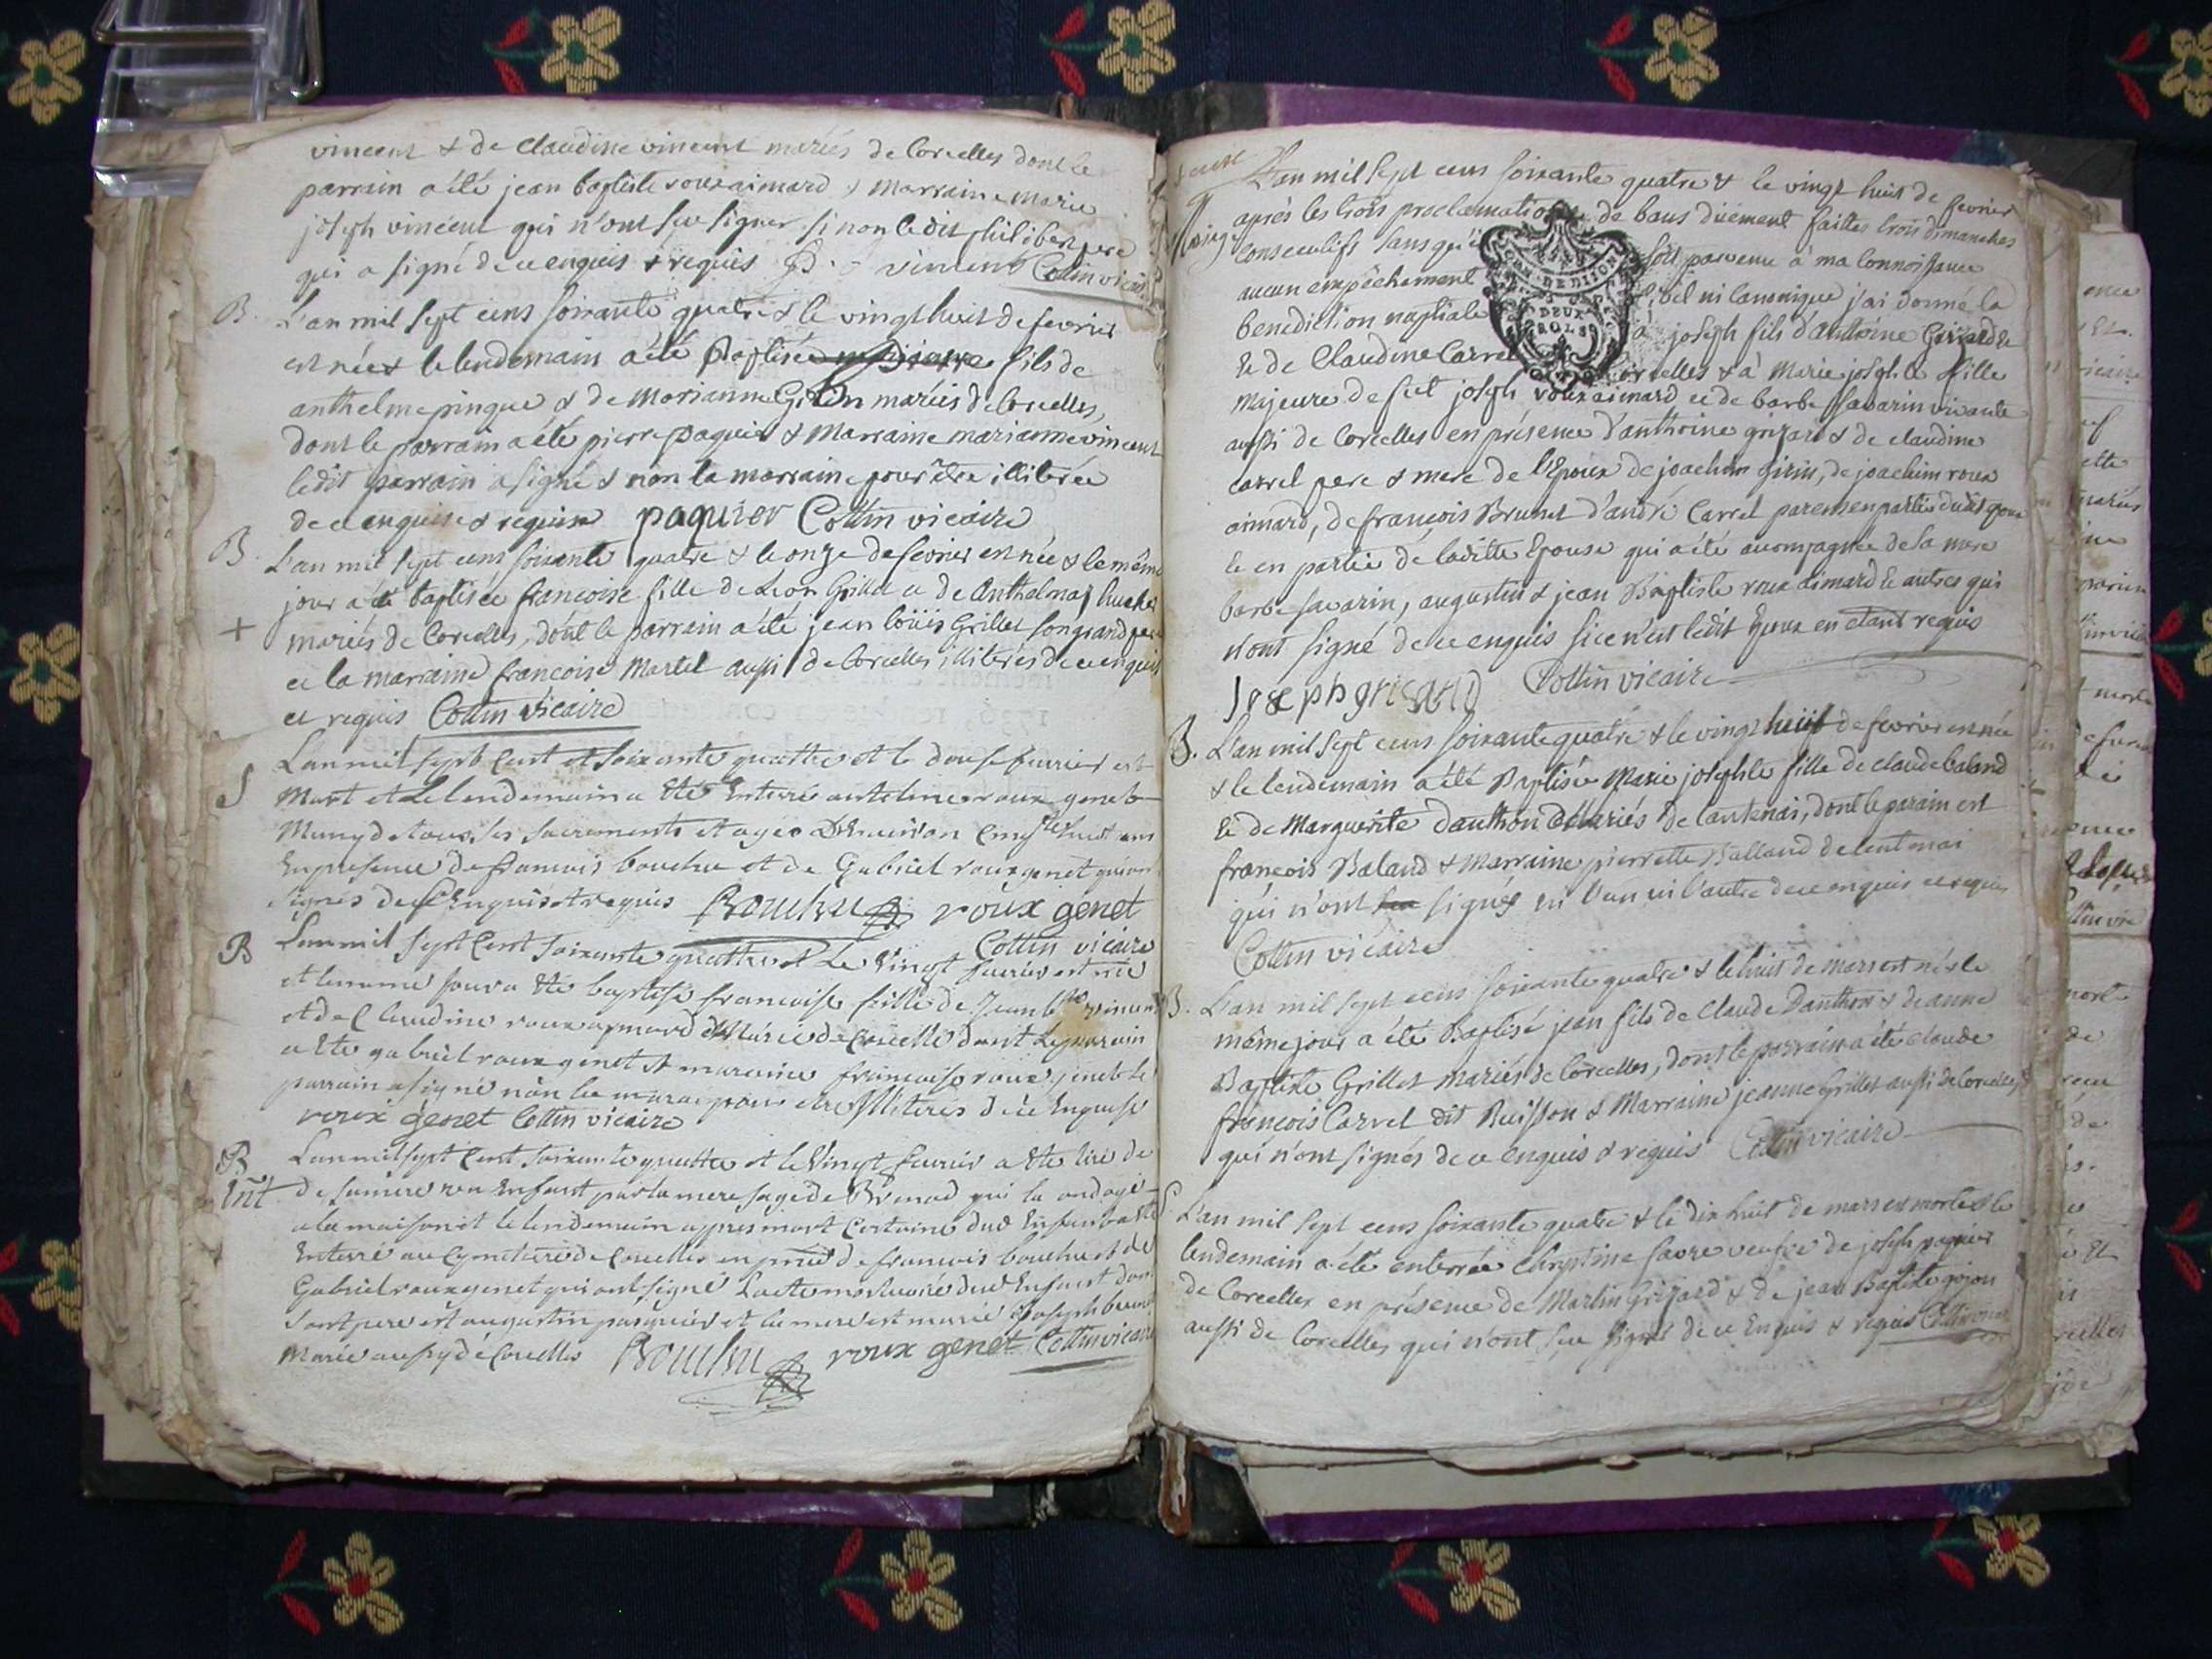 vincent & de Claudine vincent mariés de Corcelles dont le
parrain a été jean baptiste roux aimard & Marraine Marie
joseph vincent qui n'ont sçu signer si non ledit philibert pere
qui a signé de ce enquis & requis vincent Cottin vicaire
B. L'an mil sept cens soixante quatre & le vingt huit de fevrier
est né & le lendemain a été Baptisé fils de
anthelme pingue & de Marianne mariés de Corcelles,
dont le parrain a été pierre paquier & Marraine marianne vincent
ledit parrain a signé & non la marraine pour être illiterée
de ce enquise & requise paquier Cottin vicaire
B. L'an mil sept cens soixante quatre & le onze de fevrier est née & le même
jour a été baptisée francoise fille de Leon Grillet et de Anthelma
+ mariés de Corcelles, dont le parrain a été jean loüis Grillet son grand pere
et la marraine francoise Martel aussi de Corcelles illiterés de ce enquis
et requis Cottin Vicaire
S Lan mil sept cent et soixante quattre et le douse fevrier est
Mort et le lendemain a ete Enterré antelme roux genet
Muny de tous les sacrements et agé D'Environ huit ans
En presence de francois bouchu et de Gabriel roux genet qui on
signés de ce Enquis et requis Bouchu roux genet
Cottin vicaire
B Lan mil sept Cent soixante quattre et Le Vingt fevrier est née
et le meme jour a ete baptisé francoise fille de Jean bte vincent
et de Claudine roux aymard Mariés de Corcelle dont Le parain
a ete gabriel roux genet et maraine francoise roux genet le
parrain a signé non la marainne pour etre Illiterés de ce Enquise
roux genet Cottin vicaire
B Lan mil sept Cent soixante quattre et le Vingt fevrier a ete tiré de
Int de sa mere un Enfant par la mere sage de Brenod qui la ondoyé
a la maison et le lendemain apres mort Certaine dud Enfant a ete
Enterré au Cymetiere de Corcelles en pnce de francois bouchu et de
Gabriel roux genet qui ont signé Lacte mortuaire dud Enfant dont
son pere est augustin pasquier et la mere est marie Joseph
Marié aussy de Corcelles Bouchu roux genet Cottin vicaire
L'an mil sept cens soixante quatre & le vingt huit de fevrier
après les trois proclamations de bans düement faittes trois dimanches
consecutifs sans qu'il soit parvenu à ma connoissance
aucun empêchement civil ni canonique j'ai donné la
benediction nuptiale à joseph fils d'anthoine Grizard &
& de Claudine Carrel Corcelles & à Marie josephte fille
Majeure de feu joseph roux aimard et de barbe savarin vivante
aussi de Corcelles en présence d'anthoine grizard & de claudine
carrel pere & mere de l'Epoux de joachim Girin, de joachim roux
aimard, de françois Brunet d'andré Carrel parens en partie dudit epoux
& en partie de laditte Epouse qui a été accompagnée de sa mere
barbe savarin, augustin & jean Baptiste roux aimard & autres qui
n'ont signé de ce enquis si ce n'est ledit Epoux en étant requis
Joseph grisard Cottin vicaire
B. L'an mil sept cens soixante quatre & le vingt huit de fevrier est née
& le lendemain a été Baptisée Marie josephte fille de claude baland
& de Marguerite danthon Mariés de lantenai, dont le parain est
françois Baland & Marraine pierrette Balland de lentenai
qui n'ont signés ni l'un ni l'autre de ce enquis et requis
Cottin vicaire
B. L'an mil sept cens soixante quatre & le huit de mars est né & le
même jour a été Baptisé jean fils de Claude Danthon & de anne
Baptiste Grillet mariés de Corcelles, dont le parrain a été claude
françois Carrel dit Buisson & Marraine jeanne Grillet aussi de Corcelles
qui n'ont signés de ce enquis & requis Cottin vicaire
L'an mil sept cens soixante quatre & le dix huit de mars est morte & le
lendemain a été enterrée Chrystine favre veufve de joseph paquier
de Corcelles en présence de Martin Grizard & de jean Baptiste gojon
aussi de Corcelles qui n'ont sçu signer de ce Enquis & requis Cottin vicaire
DEUX
SOLS